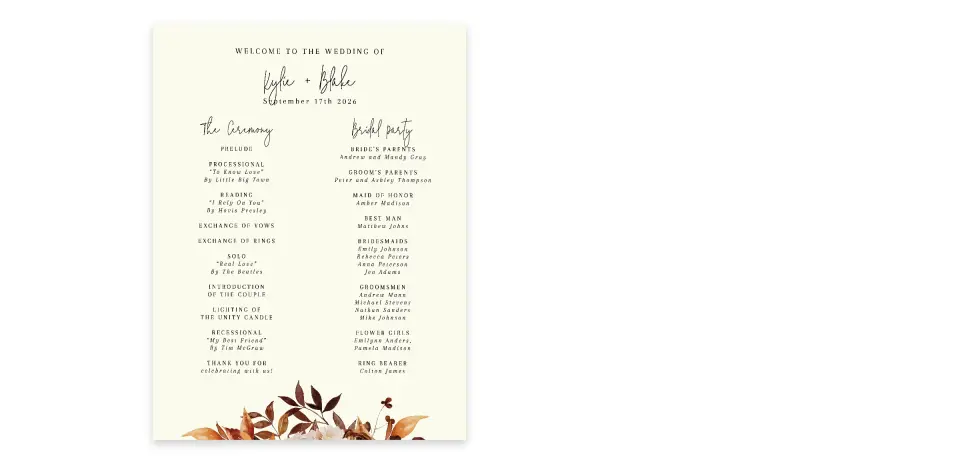 WELCOME TO THE WEDDING OF
Kylie + Blake
September 17th 2026
The Ceremony
PRELUDE
PROCESSIONAL
"To Know Love"
By Little Big Town
READING
"I Rely On You"
By Havis Presley
EXCHANGE OF VOWS
EXCHANGE OF RINGS
SOLO
"Real Love"
By The Beatles
INTRODUCTION
OF THE COUPLE
LIGHTING OF
THE UNITY CANDLE
RECESSIONAL
"My Best Friend"
By Tim McGraw
THANK YOU FOR
celebrating with us!
Bridal Party
BRIDE'S PARENTS
Andrew and Mandy Gray
GROOM'S PARENTS
Peter and Ashley Thompson
MAID OF HONOR
Amber Madison
BEST MAN
Matthew Johns
BRIDESMAIDS
Emily Johnson
Rebecca Peters
Anna Peterson
Jen Adams
GROOMSMEN
Andrew Mann
Michael Stevens
Nathan Sanders
Mike Johnson
FLOWER GIRLS
Emilynn Anders,
Pamela Madison
RING BEARER
Colton James